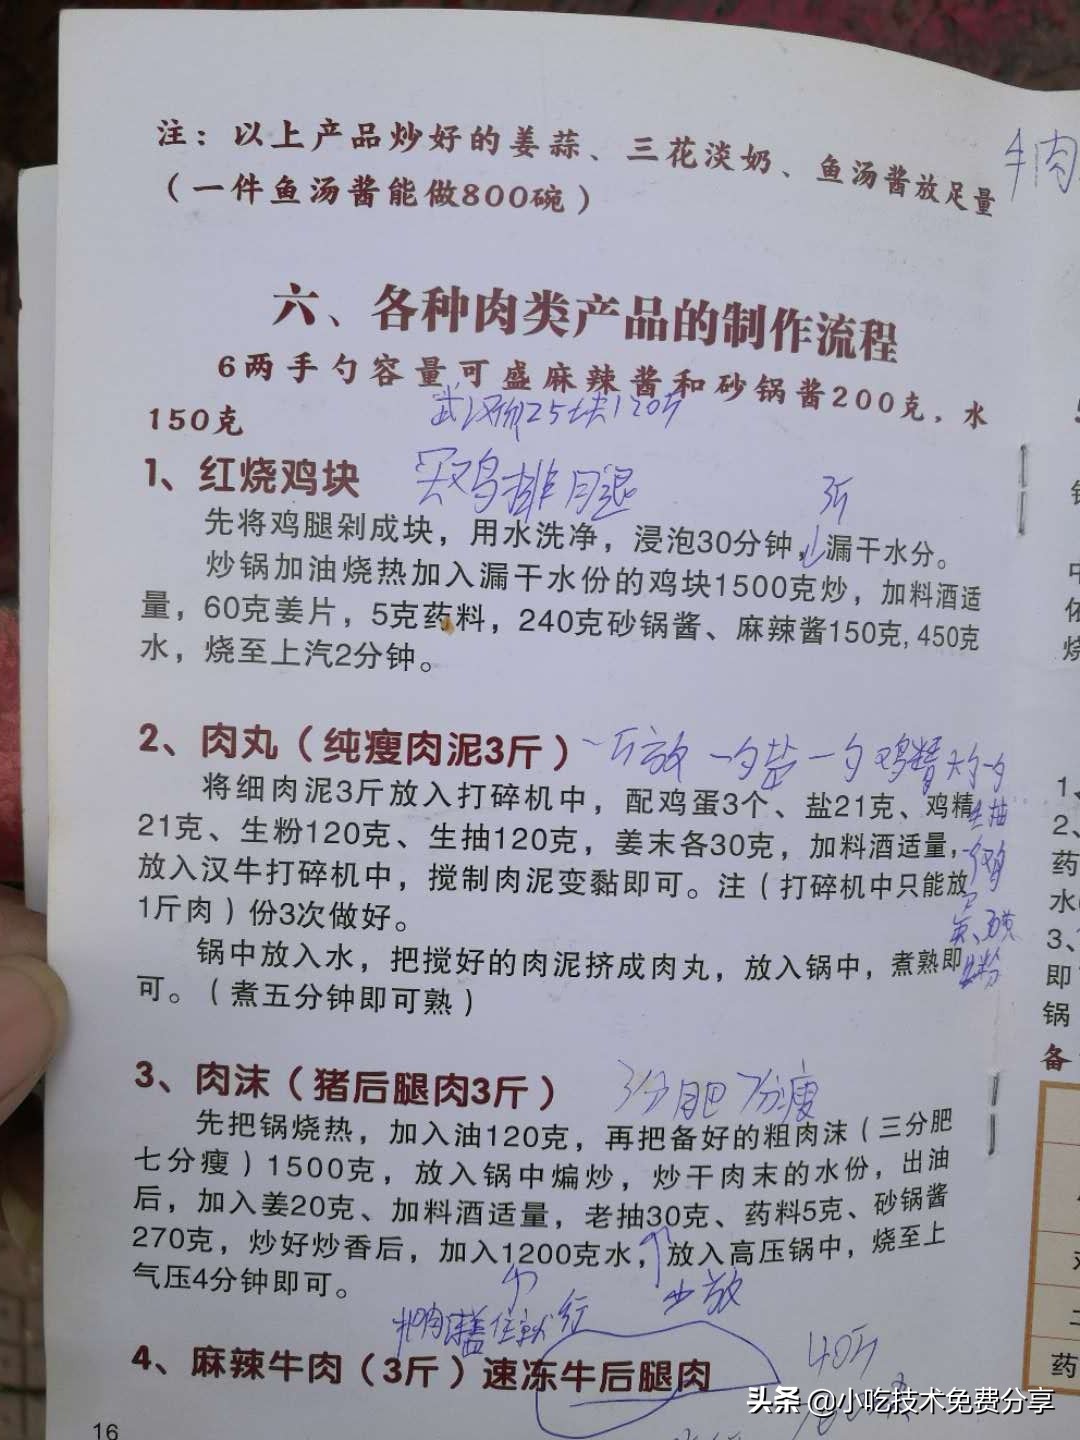 注：以上产品炒好的姜蒜、三花淡奶、鱼汤酱放足量
（一件鱼汤酱能做800碗）
牛肉
六、各种肉类产品的制作流程
6两手勺容量可盛麻辣酱和砂锅酱200克，水
150克
1、红烧鸡块
买鸡排腿
3斤
先将鸡腿剁成块，用水洗净，浸泡30分钟，漏干水分。
炒锅加油烧热加入漏干水份的鸡块1500克炒，加料酒适
量，60克姜片，5克药料，240克砂锅酱、麻辣酱150克,450克
水，烧至上汽2分钟。
2、肉丸（纯瘦肉泥3斤）
一斤放 一勺盐 一勺鸡精
将细肉泥3斤放入打碎机中，配鸡蛋3个、盐21克、鸡精
21克、生粉120克、生抽120克，姜末各30克，加料酒适量，
生抽
放入汉牛打碎机中，搅制肉泥变黏即可。注（打碎机中只能放
1斤肉）份3次做好。
锅中放入水，把搅好的肉泥挤成肉丸，放入锅中，煮熟即
生粉
可。（煮五分钟即可熟）
3、肉沫（猪后腿肉3斤）
3分肥7分瘦
先把锅烧热，加入油120克，再把备好的粗肉沫（三分肥
七分瘦）1500克，放入锅中煸炒，炒干肉末的水份，出油
后，加入姜20克、加料酒适量，老抽30克、药料5克、砂锅酱
270克，炒好炒香后，加入1200克水，放入高压锅中，烧至上
气压4分钟即可。
少放
把肉沫盖住就行
4、麻辣牛肉（3斤）速冻牛后腿肉
40斤
16
1、
2、
药
水
3、
即
锅
备
药
头条 @小吃技术免费分享